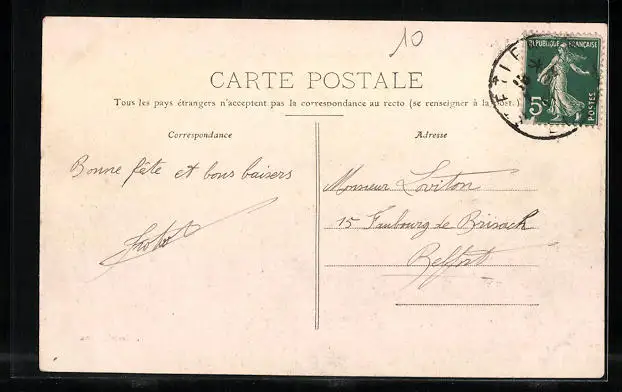 10
REPUBLIQUE FRANÇAISE
5c
POSTES
CARTE POSTALE
Tous les pays étrangers n'acceptent pas la correspondance au recto (se renseigner à la post.)
Correspondance
Adresse
Bonne fête et bons baisers
Monsieur Loviton
15 Faubourg de Brisach
Belfort